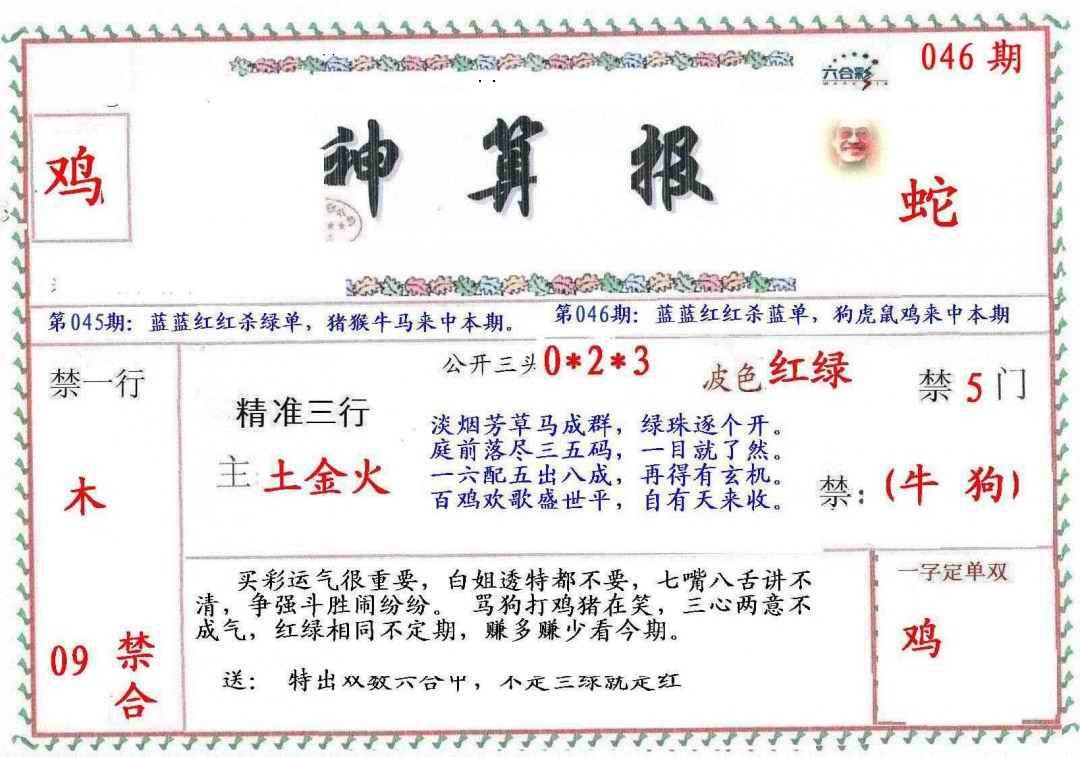 046 期
六合彩
鸡
神 算 报
蛇
第045期：蓝蓝红红杀绿单，猪猴牛马来中本期。
第046期：蓝蓝红红杀蓝单，狗虎鼠鸡来中本期
禁一行
木
09 禁合
公开三头 0*2*3
波色 红绿
禁 5 门
精准三行
主 土金火
淡烟芳草马成群，绿珠逐个开。
庭前落尽三五码，一目就了然。
一六配五出八成，再得有玄机。
百鸡欢歌盛世平，自有天来收。
禁：(牛 狗)
买彩运气很重要，白姐透特都不要，七嘴八舌讲不
清，争强斗胜闹纷纷。 骂狗打鸡猪在笑，三心两意不
成气，红绿相同不定期，赚多赚少看今期。
送： 特出双数六合中，不是三绿就是红
一字定单双
鸡